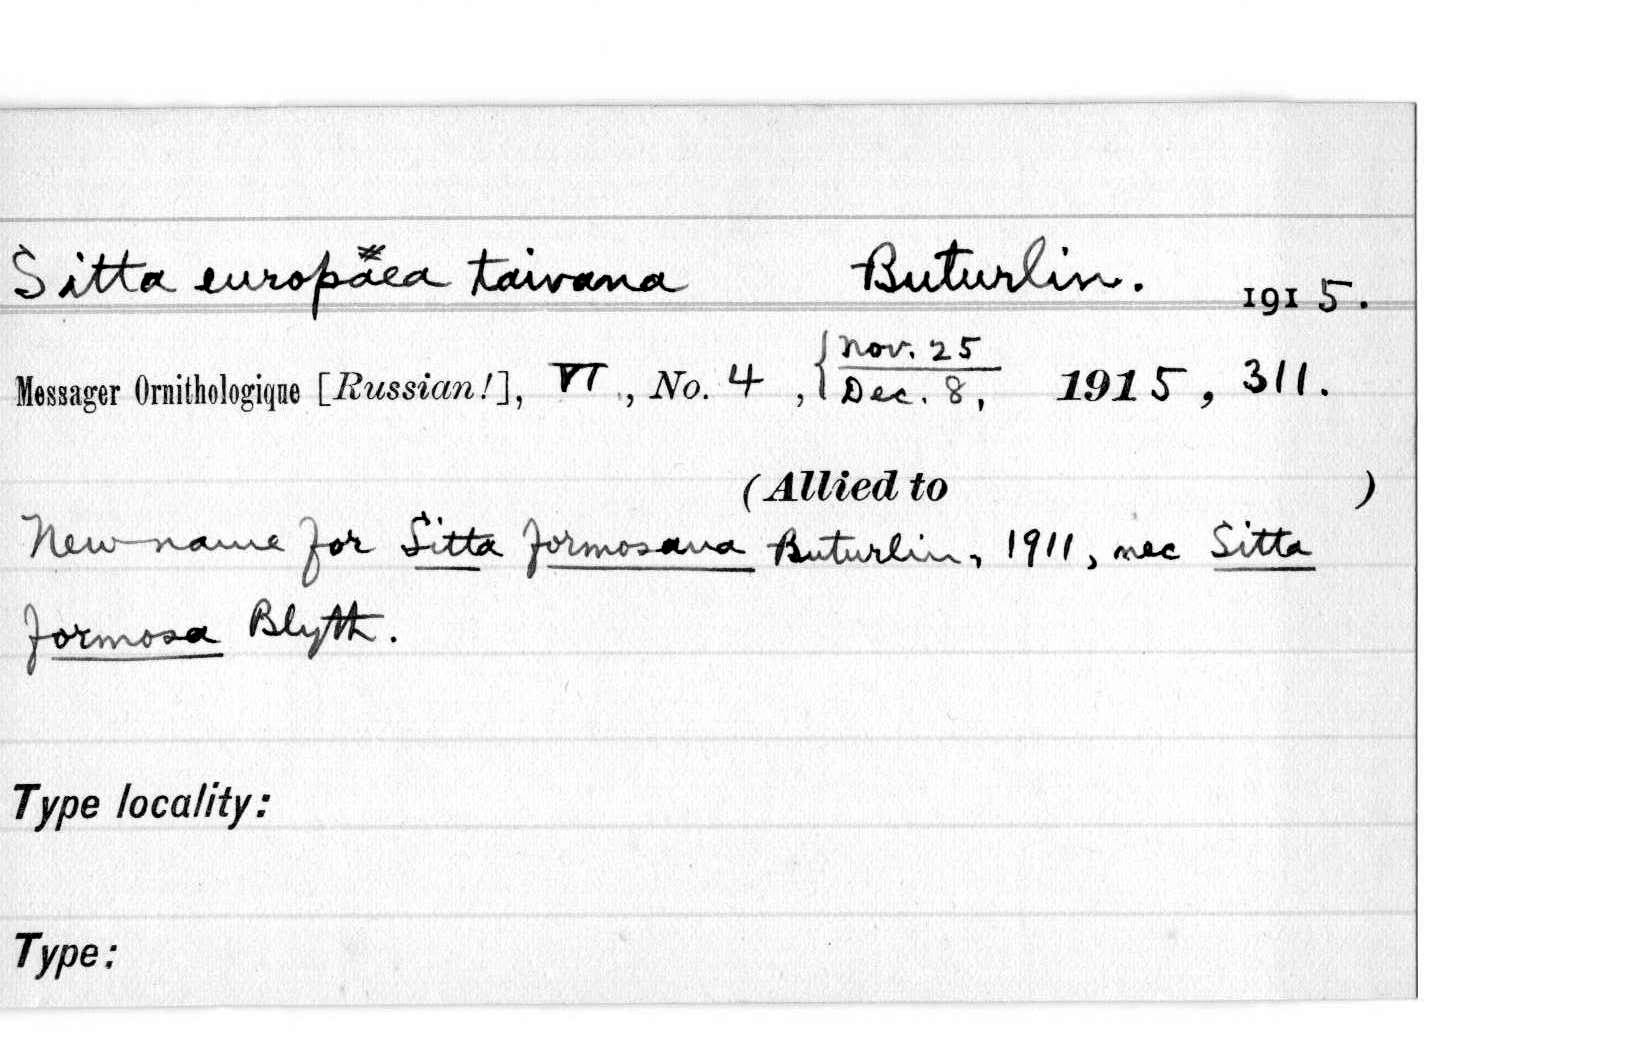 Sitta europaea taivana Buturlin. 1915.
Messager Ornithologique [Russian!], VI, No. 4, {Nov. 25
Dec. 8, 1915, 311.
(Allied to )
New name for Sitta formosana Buturlin, 1911, nec Sitta
formosa Blyth.
Type locality:
Type: